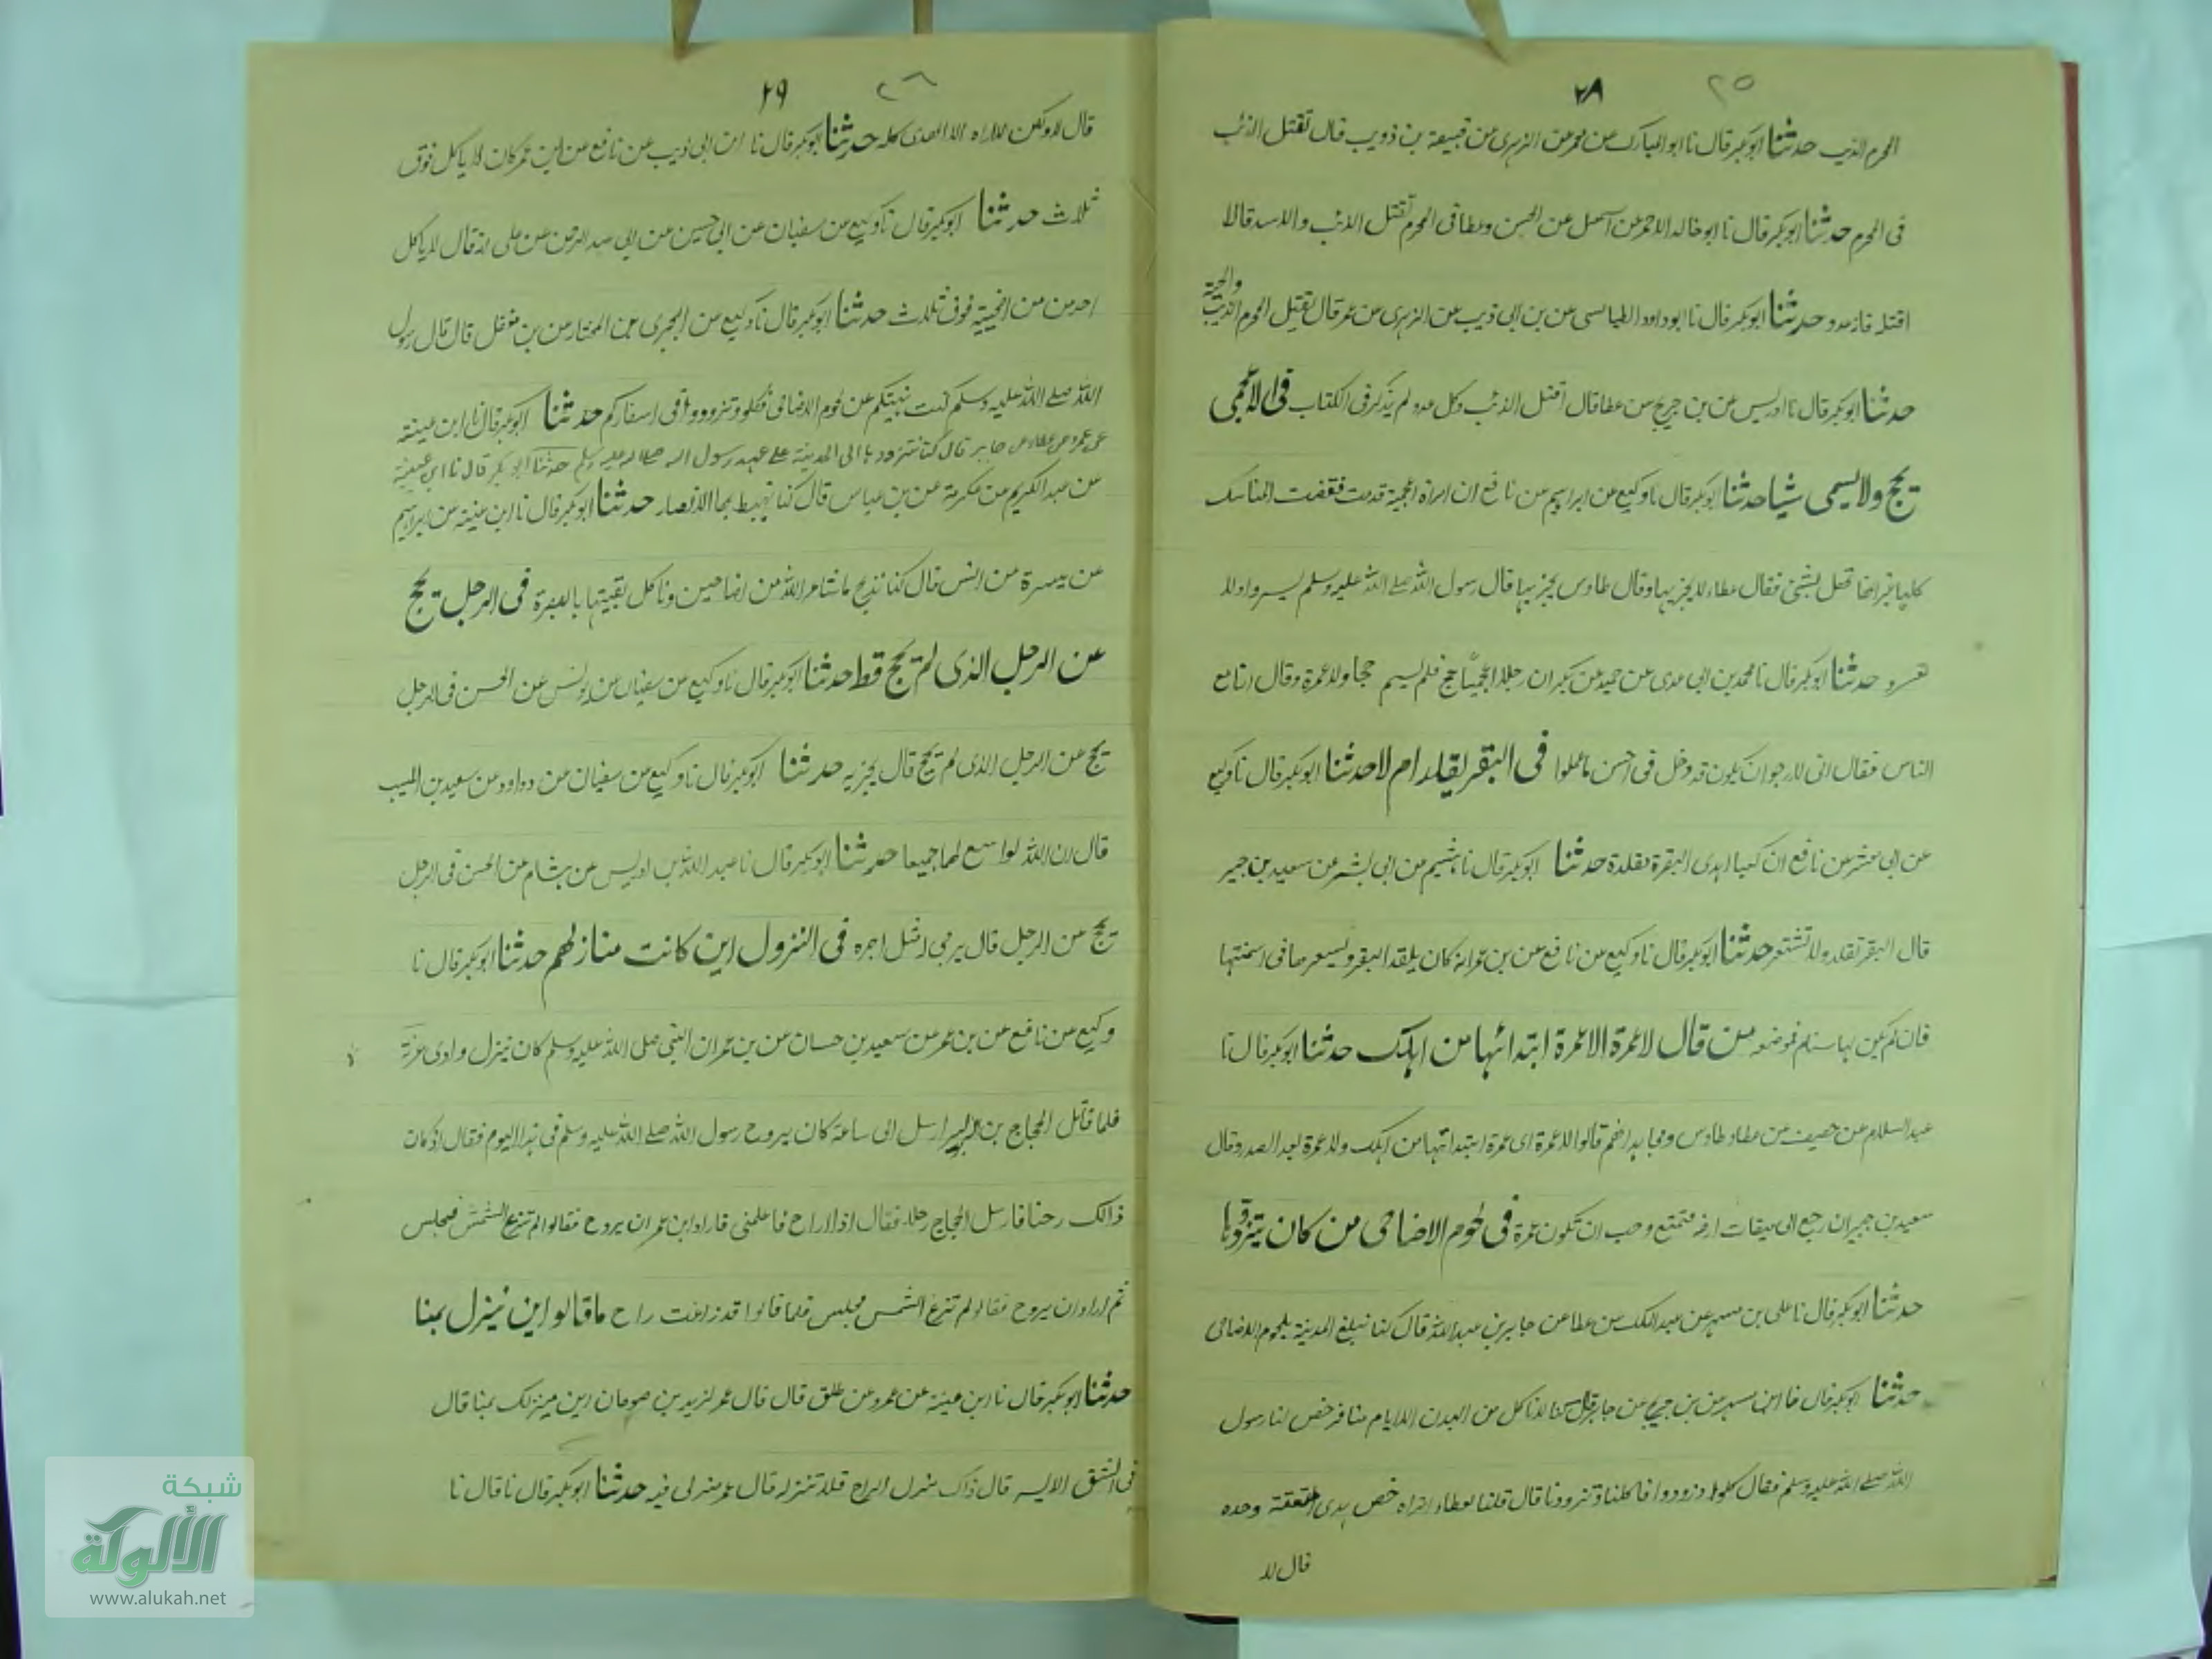 ٢٨ ٢٥
المحرم الذيب حدثنا ابوبكر قال نا ابو المبارك عن معمر عن الزهرى عن قبيصة بن ذويب قال تقتل الذئب
فى الحرم حدثنا ابوبكر قال نا ابو خالد الاحمر عن عن الحسن وعطا فى المحرم تقتل الذئب والاسد قالا
اقتله فانه عدو حدثنا ابوبكر قال نا ابوداود الطيالسى عن بن ابى ذيب عن الزهرى عن عمر قال تقتل المحرم الذيب والحية
حدثنا ابوبكر قال نا ادريس عن بن جريج عن عطا قال اقتل الذئب وكل عدو لم يذكر فى الكتاب فى الاعجمى
يحج ولا يسمى شيا حدثنا ابوبكر قال نا وكيع عن ابراهيم من نافع ان امراة اعجمية قدمت فقضت المناسك
كلها غير انها لم تهل بشئ فقال عطاء لا يجزيها وقال طاوس يجزيها قال رسول الله صلے الله عليه وسلم يسروا ولا
تعسرو حدثنا ابوبكر قال نا محمد بن ابى عدى عن حميد عن بكر ان رجلا اعجميا حج فلم يسم حجا ولا عمرة وقال انا مع
الناس فقال انى لارجو ان يكون قد دخل فى احسن ما عملوا فى البقر يقلد ام لا حدثنا ابوبكر قال نا وكيع
عن ابى معشر عن نافع ان اهدى البقرة مقلدة حدثنا ابوبكر قال نا هشيم من ابى بشر عن سعيد بن جبير
قال البقر تقلد ولا تشعر حدثنا ابوبكر قال نا وكيع من نافع عن بن عمر انه كان يلقد البقر ويسعرها فى اسنمتها
فان لم يكن لها سنام فموضعه من قال لا عمرة الا عمرة ابتدائها من اهلك حدثنا ابوبكر قال نا
عبد السلام عن خصيف عن عطا وطاوس ومجاهد انهم قالوا لا عمرة اى عمرة ابتداتها من اهلك ولا عمرة بعد الصدر وقال
سعيد بن جبير ان رجع الى ميقات ارضه فتمتع وحب ان تكون عمرة فى لحوم الاضاحى من كان يتزودها
حدثنا ابوبكر قال نا على بن مسهر عن عبد الملك عن عطا عن جابر بن عبد الله قال كنا نبلغ المدينة بلحوم الاضاحى
حدثنا ابوبكر قال نا ابن مسهر عن بن جريج عن جابر قال كنا لا ناكل من البدن الا ايام منا فرخص لنا رسول
الله صلے الله عليه وسلم فقال كلوا وتزودوا فاكلنا وتزودنا قال قلنا لعطاء اتراه خص هدى المتعة وحده
قال لا
٢٩ ٢٦
قال لا ولكن لا اراه الا الهدى كله حدثنا ابوبكر قال نا ابن ابى ذيب عن نافع عن ابن عمر كان لا ياكل فوق
ثلاث حدثنا ابوبكر قال نا وكيع عن سفيان عن ابى حسين عن ابى عبد الرحمن عن على انه قال لا ياكل
احد من من اضحيته فوق ثلاث حدثنا ابوبكر قال نا وكيع عن عن المختار من بن مغفل قال قال رسول
الله صلے الله عليه وسلم كنت نهيتكم عن لحوم الاضاحى فكلوا وتزودوا فى اسفاركم حدثنا ابوبكر قال نا ابن عيينه
عن عمرو عن عطاء عن جابر قال كنا نتزودها الى المدينة على عهد رسول الله صلى الله عليه وسلم حدثنا ابوبكر قال نا ابن عيينه
عن عبد الكريم من عكرمة عن بن عباس قال كنا نهبط بها الامصار حدثنا ابوبكر قال نا ابن عيينه من ابراهيم
عن ميسرة من انس قال كنا نذبح ما شاء الله من اضاحين وناكل بقيتها بالبصرة فى الرجل يحج
عن الرجل الذى لم يحج قط حدثنا ابوبكر قال نا وكيع من سفيان من يونس عن الحسن فى الرجل
يحج عن الرجل الذى لم يحج قال يجزيه حدثنا ابوبكر قال نا وكيع من سفيان من دواود من سعيد بن المسيب
قال ان الله لواسع لهما جميعا حدثنا ابوبكر قال نا عبد الله بن ادريس عن هشام من الحسن فى الرجل
يحج عن الرجل قال يرجى له مثل اجره فى النزول اين كانت منازلهم حدثنا ابوبكر قال نا
وكيع من نافع عن بن عمر عن سعيد بن حسان من بن عمر ان النبى صلى الله عليه وسلم كان ينزل وادى عرنة
فلما قاتل الحجاج بن الزبير ارسل الى ساعة كان يروح رسول الله صلے الله عليه وسلم فى هذا اليوم فقال اذ كان
ذالك رحنا فارسل الحجاج رجلا فقال اذا راح فاعلمنى فاراد ابن عمر ان يروح فقالوا لم تزغ الشمس فجلس
ثم اراد ان يروح فقالو لم تزغ الشمس فجلس فلما قالوا قد زاغت راح ما قالو اين ينزل بمنا
حدثنا ابوبكر قال نا ابن عيينه عن عمرو عن طلق قال قال عمر لزيد بن صوحان اين منزلك بمنا قال
فى الشق الايسر قال ذاك منزل الداج فلا تنزله قال عمر منزلى فيه حدثنا ابوبكر قال نا قال نا
شبكة
الألوكة
www.alukah.net